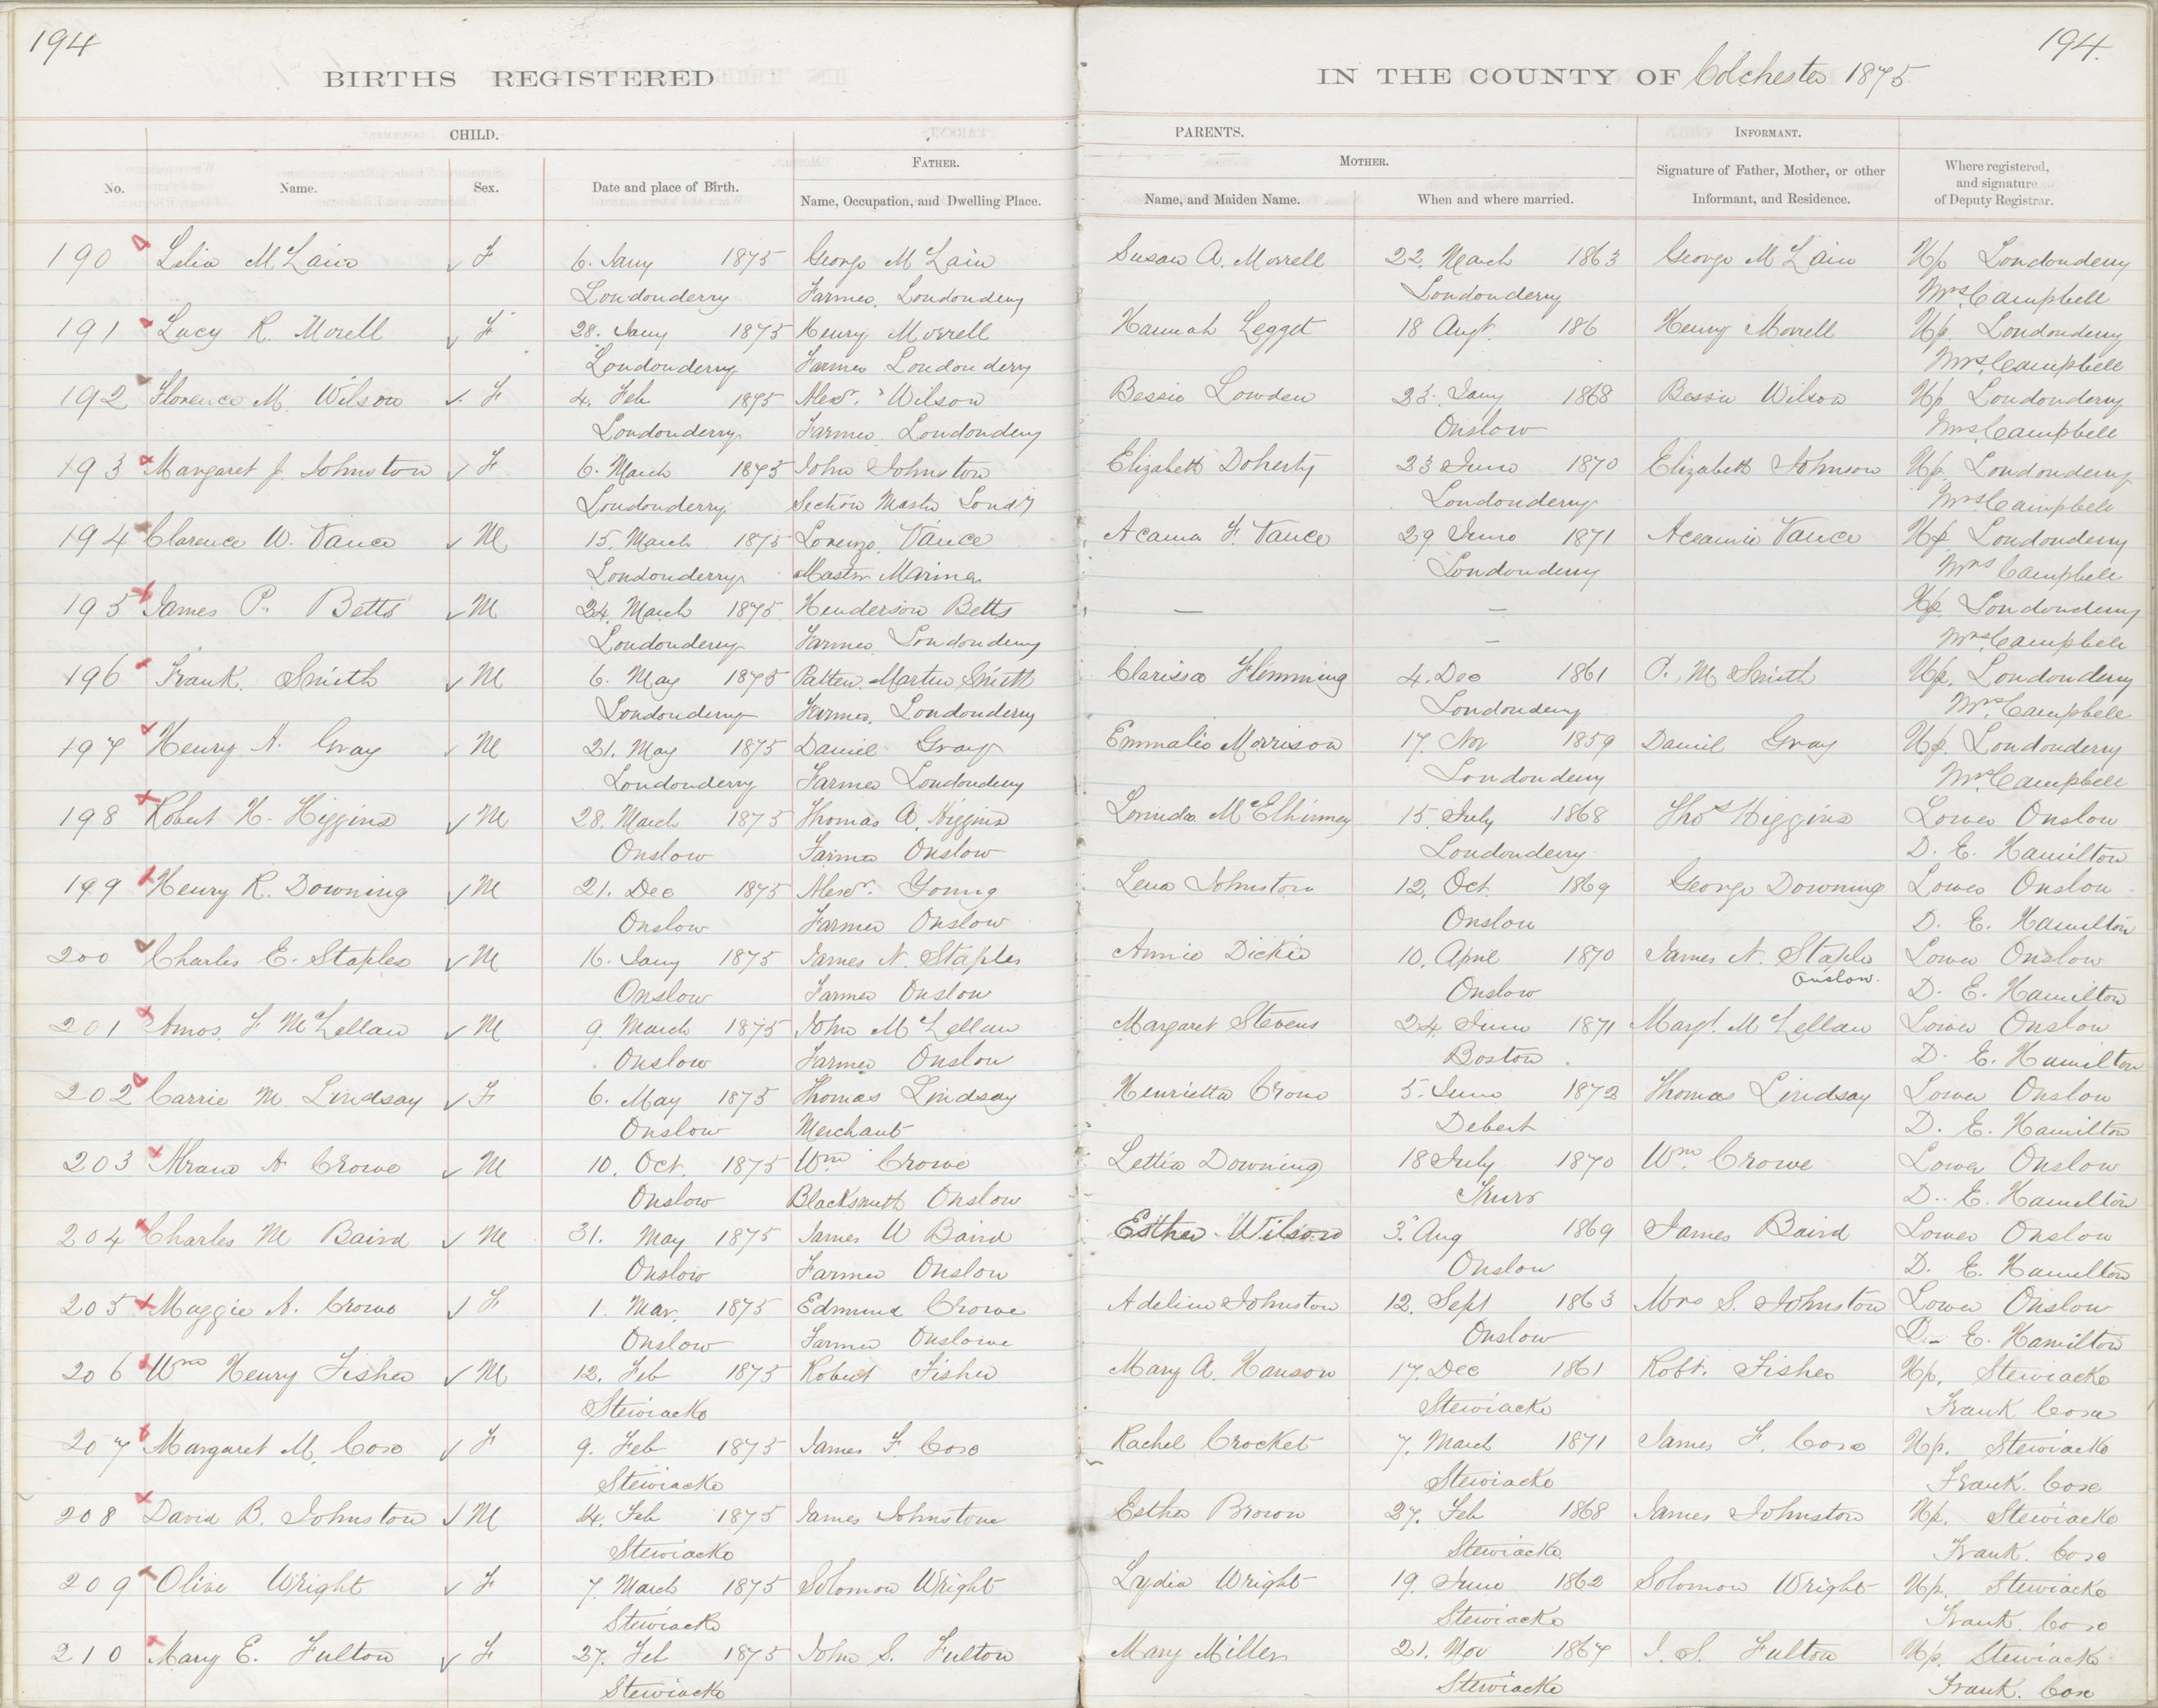 194 194.
BIRTHS REGISTERED IN THE COUNTY OF Colchester 1875
CHILD. PARENTS. INFORMANT.
FATHER. MOTHER.
No. Name. Sex. Date and place of Birth. Name, Occupation, and Dwelling Place. Name, and Maiden Name. When and where married. Signature of Father, Mother, or other Informant, and Residence. Where registered, and signature of Deputy Registrar.
190 Lelia McLain F 6. Jany 1875 George McLain Susan A. Morrell 22. March 1863 George McLain Up Londonderry
Londonderry Farmer, Londonderry Londonderry Mrs. Campbell
191 Lucy R. Morell F 28. Jany 1875 Henry Morrell Hannah Legget 18 Augt. 186 Henry Morrell Up. Londonderry
Londonderry Farmer Londonderry Mrs. Campbell
192 Florence M. Wilson F 4. Feb 1875 Alexr. Wilson Bessie Lowden 23. Jany 1868 Bessie Wilson Up Londonderry
Londonderry Farmer. Londonderry Onslow Mrs. Campbell
193 Margaret J. Johnston F 6. March 1875 John Johnston Elizabeth Doherty 23 June 1870 Elizabeth Johnson Up. Londonderry
Londonderry Section Master Londy Londonderry Mrs Campbell
194 Clarence W. Vance M 15. March 1875 Lorenzo Vance Acama F. Vance 29 June 1871 Vance Up Londonderry
Londonderry Master Mariner Londonderry Mrs Campbell
195 James P. Betts M 24. March 1875 Henderson Betts — — Up. Londonderry
Londonderry Farmer, Londonderry — Mrs Campbell
196 Frank. Smith M 6. May 1875 Patten Martin Smith Clarissa Flemming 4. Dec 1861 P. M Smith Up. Londonderry
Londonderry Farmer, Londonderry Londonderry Mrs. Campbell
197 Henry A. Gray M 21. May 1875 Daniel Gray Emmalie Morrison 17. Nov 1859 Daniel Gray Up. Londonderry
Londonderry Farmer Londonderry Londonderry Mrs Campbell
198 Robert H. Higgins M 28. March 1875 Thomas A. Higgins Lorinda McElhinney 15. July 1868 Thos Higgins Lower Onslow
Onslow Farmer Onslow Londonderry D. E. Hamilton
199 Henry R. Downing M 21. Dec 1875 Alexr. Young Lena Johnston 12. Oct. 1869 George Downing Lower Onslow
Onslow Farmer Onslow Onslow D. E. Hamilton
200 Charles E. Staples M 16. Jany 1875 James N. Staples Annie Dickie 10. April 1870 James N. Staples Lower Onslow
Onslow Farmer Onslow Onslow Onslow. D. E. Hamilton
201 Amos. F McLellan M 9. March 1875 John McLellan Margaret Stevens 24. June 1871 Margt. McLellan Lower Onslow
Onslow Farmer Onslow Boston D. E. Hamilton
202 Carrie M. Lindsay F 6. May 1875 Thomas Lindsay Henrietta Crowe 5. June 1872 Thomas Lindsay Lower Onslow
Onslow Merchant Debert D. E. Hamilton
203 A Crowe M 10. Oct. 1875 Wm Crowe Lettia Downing 18 July 1870 Wm. Crowe Lower Onslow
Onslow Blacksmith Onslow Truro D. E. Hamilton
204 Charles M Baird M 31. May 1875 James W Baird Esther Wilson 3. Aug 1869 James Baird Lower Onslow
Onslow Farmer Onslow Onslow D. E. Hamilton
205 Maggie A. Crowe F 1. Mar. 1875 Edmund Crowe Adeline Johnston 12. Sept 1863 Mrs S. Johnston Lower Onslow
Onslow Farmer Onslowe Onslow D. E. Hamilton
206 Wm Henry Fisher M 12. Feb 1875 Robert Fisher Mary A. Hanson 17. Dec 1861 Robt. Fisher Up. Stewiacke
Stewiacke Stewiacke Frank Coxe
207 Margaret M. Coxe F 9. Feb 1875 James F Coxe Rachel Crocket 7. March 1871 James F. Coxe Up. Stewiacke
Stewiacke Stewiacke Frank. Coxe
208 David B. Johnston M 14. Feb 1875 James Johnstone Esther Brown 27. Feb 1868 James Johnston Up. Stewiacke
Stewiacke Stewiacke Frank. Coxe
209 Olive Wright F 7. March 1875 Solomon Wright Lydia Wright 19. June 1862 Solomon Wright Up. Stewiacke
Stewiacke Stewiacke Frank. Coxe
210 Mary E. Fulton F 27. Feb 1875 John S. Fulton Mary Miller 21. Nov 1867 J. S. Fulton Up. Stewiacke
Stewiacke Stewiacke Frank. Coxe